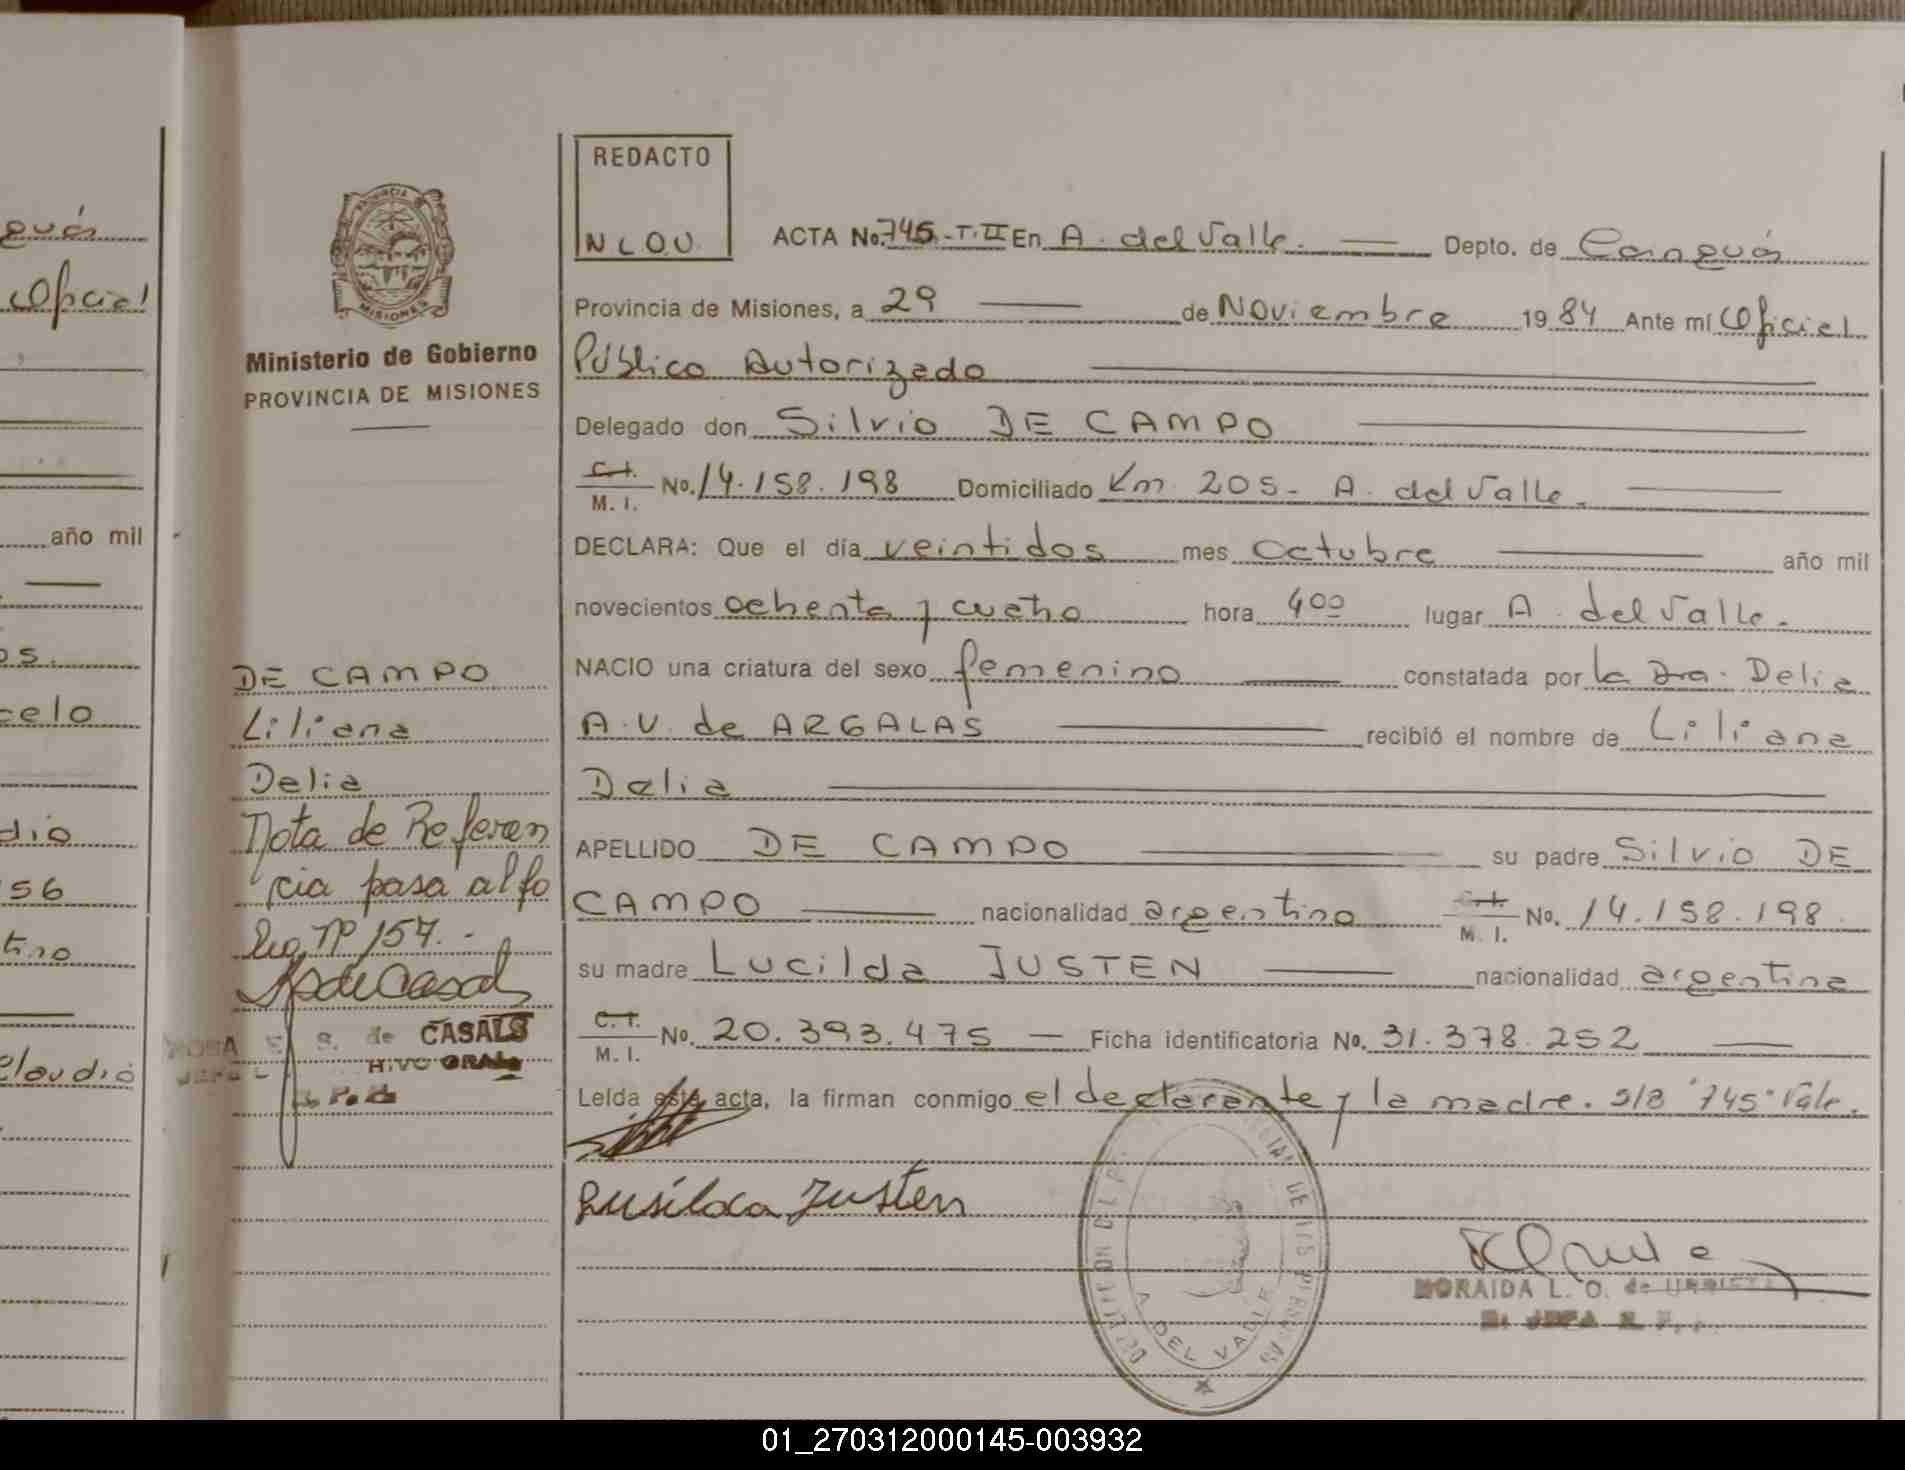 guás
Oficial
año mil
os.
celo
dio
56
tino
Claudio
Ministerio de Gobierno
PROVINCIA DE MISIONES
DE CAMPO
Liliana
Delia
Nota de Referen
cia pasa al fo
lio Nº 157.-
S. de CASALS
REDACTO
N L O U.
ACTA No. 745.-T.II En A. del Valle. Depto. de Cainguás
Provincia de Misiones, a 29 de Noviembre 1984 Ante mí Oficial
Público Autorizado
Delegado don Silvio DE CAMPO
C.I.
M. I. No. 14.158.198 Domiciliado Km 205- A. del Valle.
DECLARA: Que el día veintidos mes Octubre año mil
novecientos ochenta y cuatro hora 400 lugar A. del Valle.
NACIO una criatura del sexo femenino constatada por la Dra. Delia
A.V. de ARGALAS recibió el nombre de Liliana
Delia
APELLIDO DE CAMPO su padre Silvio DE
CAMPO nacionalidad argentino C.I. M. I. No. 14.158.198
su madre Lucilda JUSTEN nacionalidad argentina
C.I.
M. I. No. 20.393.475 Ficha identificatoria No. 31.378.252
Leída esta acta, la firman conmigo el declarante y la madre. S/B "745" Vale.
Lusilda Justen
A. DEL VALLE
MORAIDA L. O. de
01_270312000145-003932